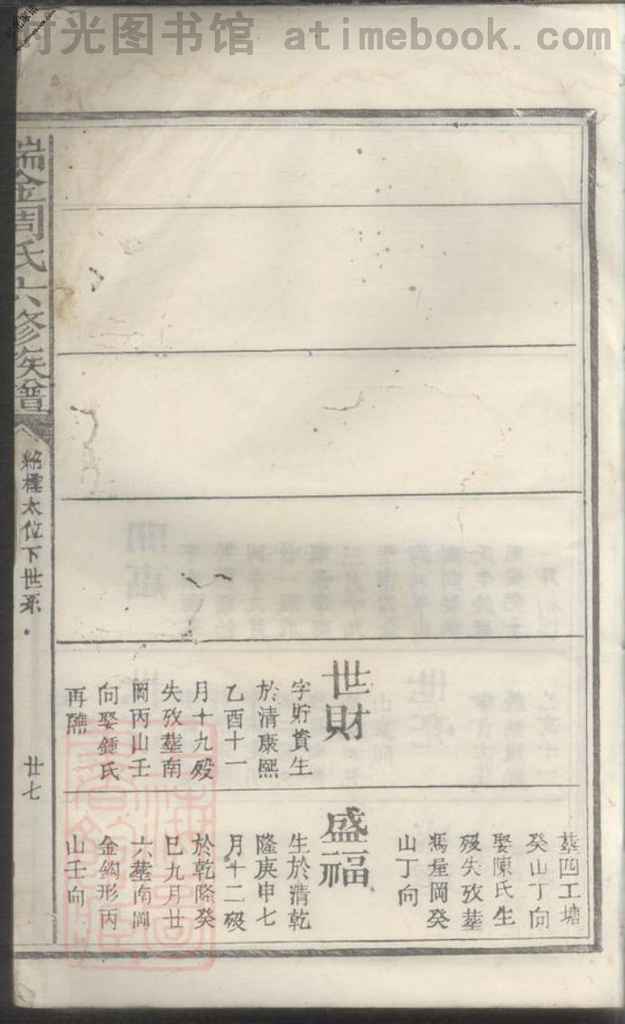 时光图书馆 atimebook.com
瑞金周氏六修族譜
太位下世系
廿七
世財
字貯貲生
於清康熙
乙酉十一
月十九殁
失攷塟南
岡丙山壬
向娶鍾氏
再醮
塟四工塘
癸山丁向
娶陳氏生
殁失攷塟
馮屋岡癸
山丁向
盛福
生於清乾
隆庚申七
月十二殁
於乾隆癸
巳九月廿
六塟南岡
金鈎形丙
山壬向